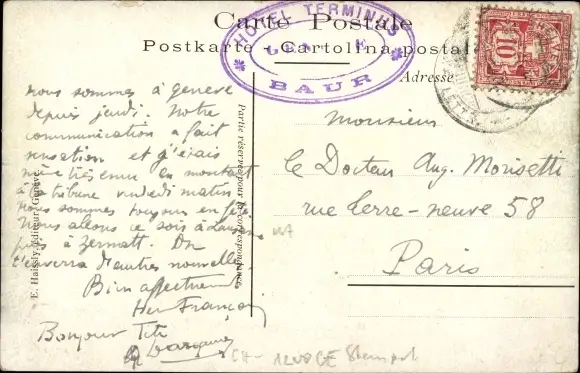 Carte Postale
Postkarte - Cartolina postale
HOTEL TERMINUS
GENÈVE
BAUR
10
Adresse
Partie réservée pour la correspondance.
E. Haissly, Editeur, Genève.
nous sommes à genève
depuis jeudi. Notre
communication a fait
sensation et j'étais
même très ému en montant
à la tribune vendredi matin
nous sommes toujours en fête
Nous allons ce soir à
puis à Zermatt. On
t'enverra d'autres nouvelles
Bien affectment
François
Bonjour Titi
Monsieur
le Docteur Aug. Morisetti
rue terre-neuve 58
Paris
CH- 1200 GE Stempel